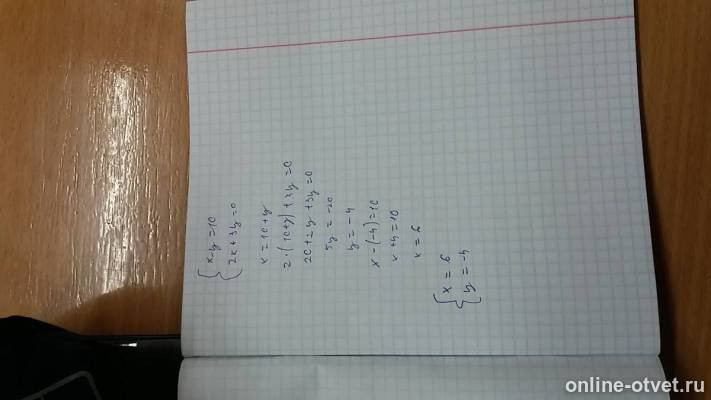 { x-y=10
{ 2x+3y=0
x=10+y
2·(10+y)+3y=0
20+2y+3y=0
5y=-20
y=-4
x-(-4)=10
x+4=10
x=6
{ x=6
{ y=-4
online-otvet.ru